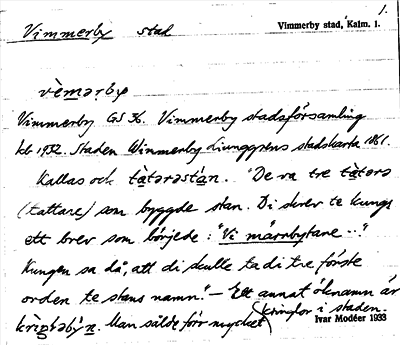 1.
Vimmerby stad
Vimmerby stad, Kalm. l.
vèmərby
Vimmerby GS 36. Vimmerby stadsförsamling
kb 1932. Staden Wimmerby Ljunggrens stadskarta 1861.
Kallas och tàtərəstán. "De va tre tàtərə
(tattare) som byggde stan. Di skrev te kungs
ett brev som började: "Vi märrnbytare..."
Kungen sa då, att di skulle ta di tre förste
orden te stans namn." – Ett annat öknamn är
Man sålde förr mycket
kringlor i staden.
Ivar Modéer 1933